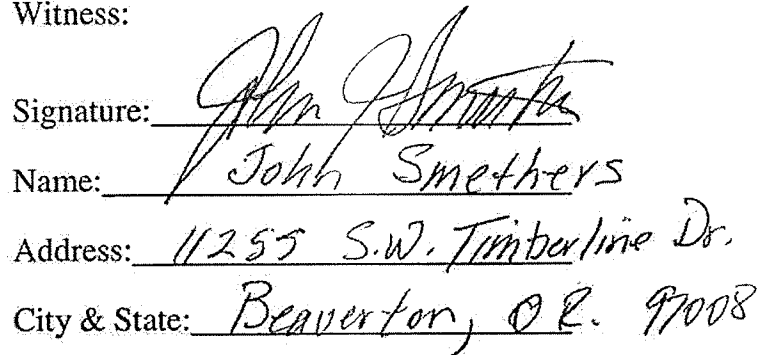 Witness:
Signature: John
Name: John Smethers
Address: 11255 S.W. Timberline Dr.
City & State: Beaverton, OR. 97008